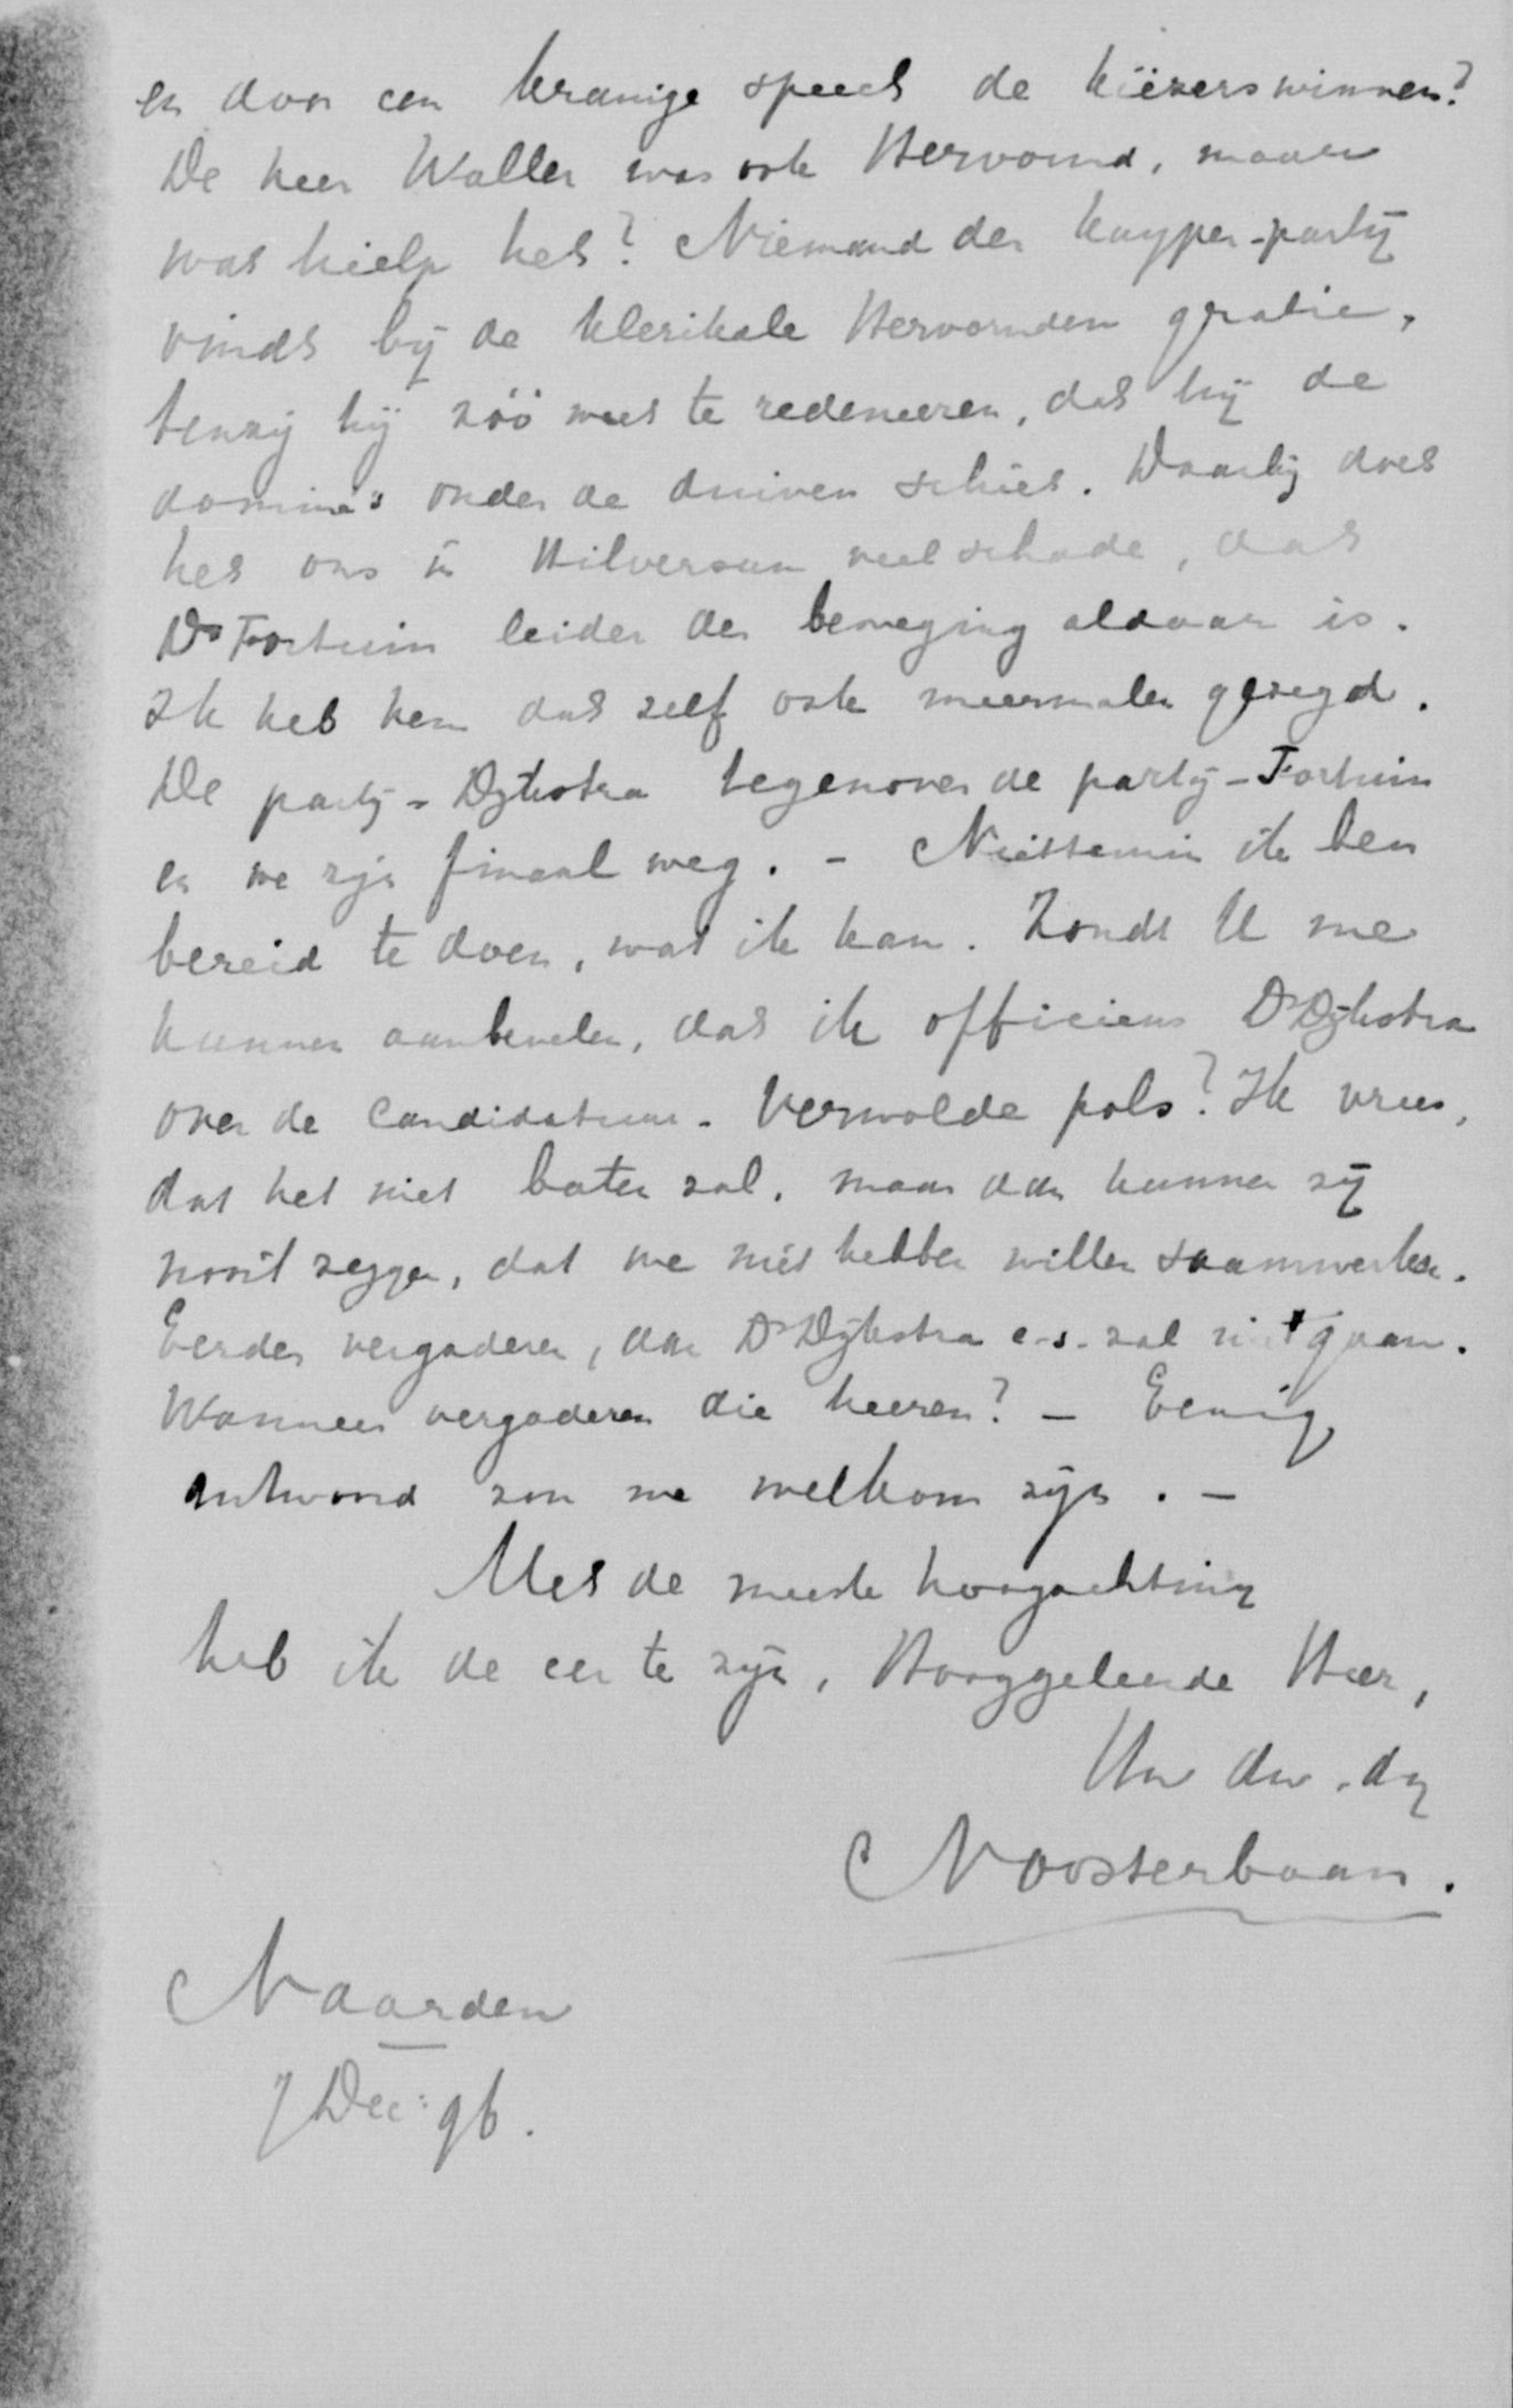 en door een kranige speech de kiezers winnen?
De heer Waller was ook Hervormd, maar
wat hielp het? Niemand der Kuyper-partij
vindt bij de klerikale Hervormden gratie,
tenzij hij zóó weet te redeneeren, dat hij de
dominé's onder de duiven schiet. Daarbij doet
het ons in Hilversum veel schade, dat
Ds Fortuin leider der beweging aldaar is.
Ik heb hem dat zelf ook meermalen gezegd.
De partij-Dijkstra tegenover de partij-Fortuin
en we zijn finaal weg. - Niettemin ik ben
bereid te doen, wat ik kan. Zoudt U me
kunnen aanbevelen, dat ik officieus Ds Dijkstra
over de Candidatuur-Verwolde pols? Ik vrees,
dat het niet baten zal, maar dan kunnen zij
nooit zeggen, dat we niet hebben willen saamwerken.
Eerder vergaderen, dan Ds Dijkstra c.s. zal niet gaan.
Wanneer vergaderen die heeren? - Eenig
antwoord zou me welkom zijn. -
Met de meeste hoogachting
heb ik de eer te zijn, Hooggeleerde Heer,
Uw dw. dr
N Oosterbaan.
Naarden
7 Dec: 96.